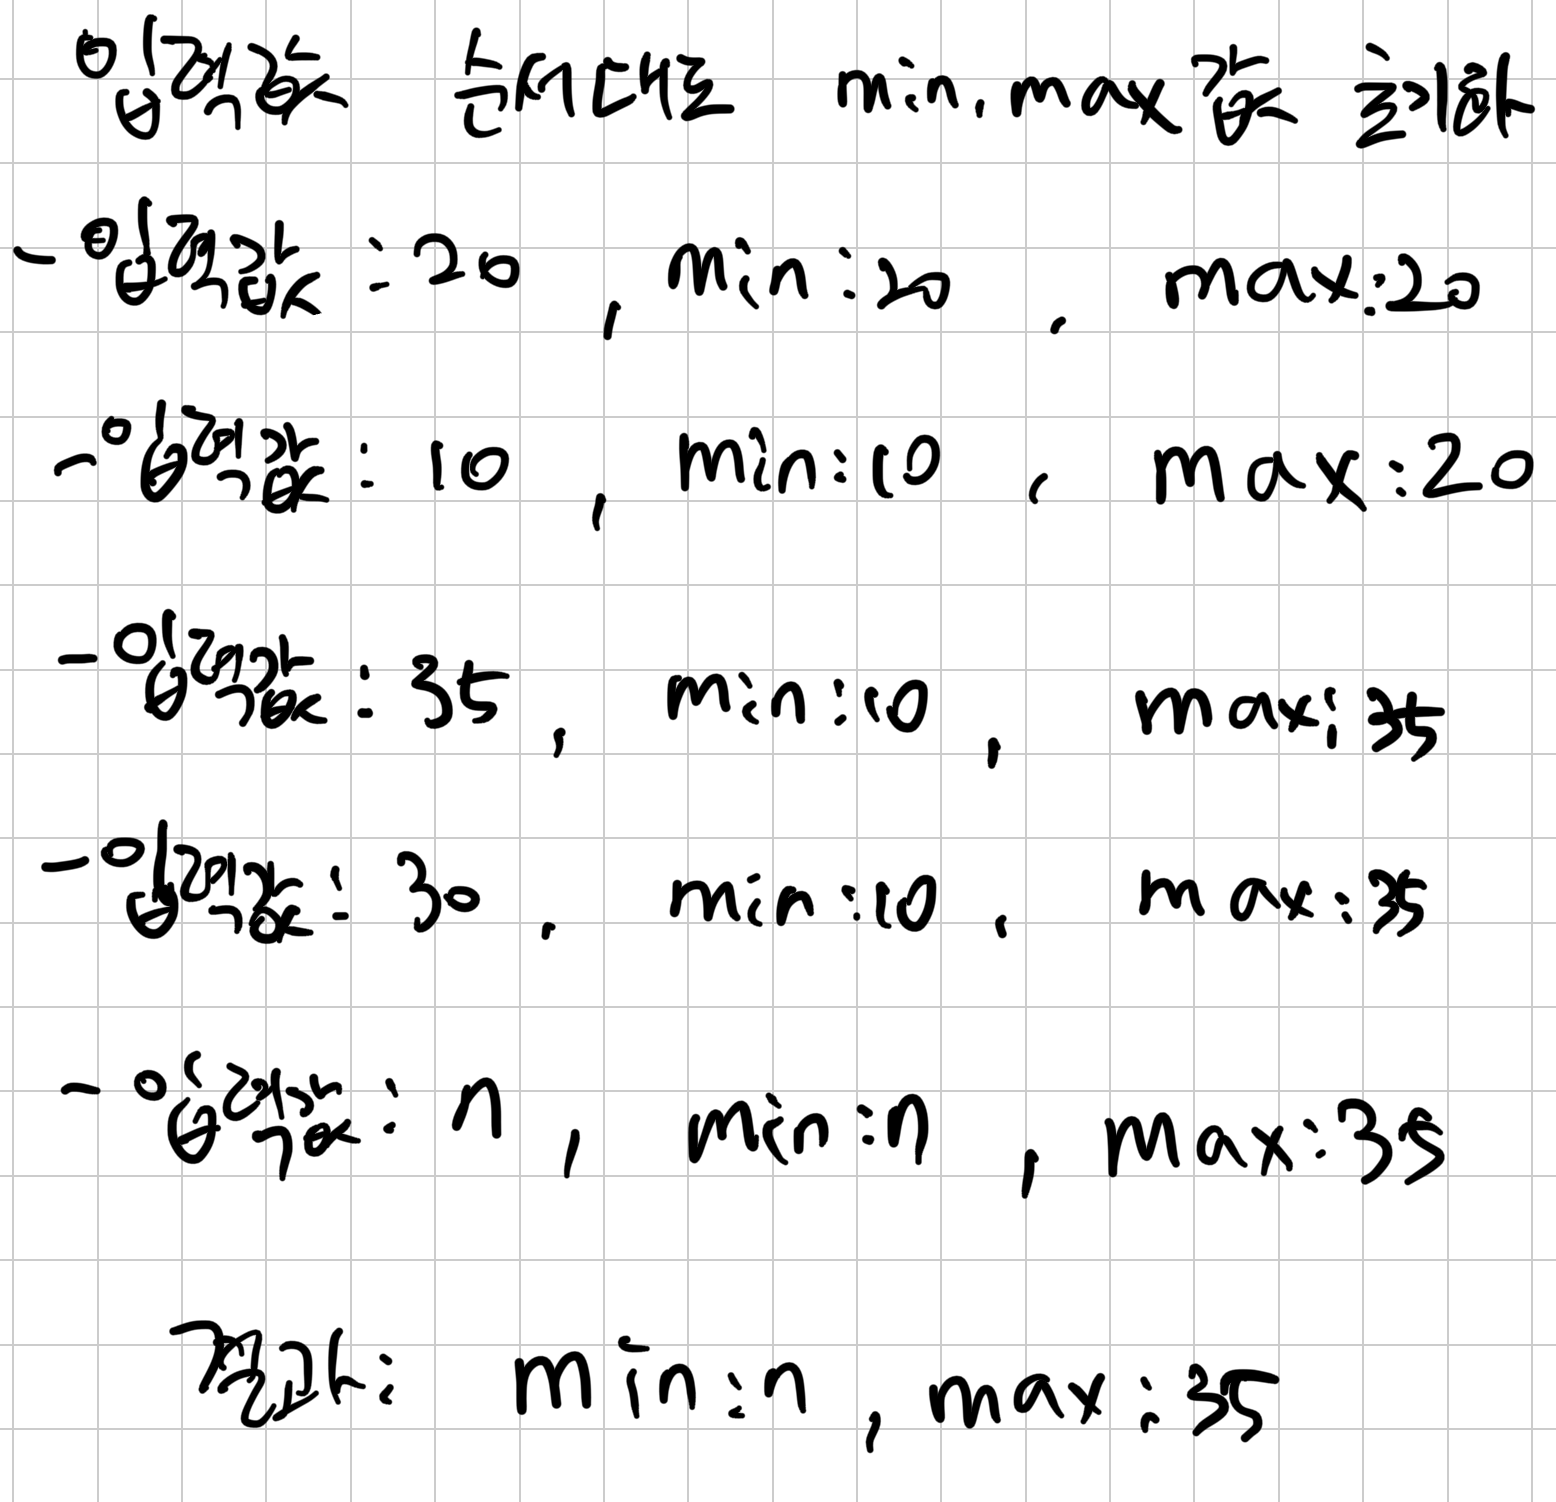 입력값 순서대로 min, max값 초기화
- 입력값 : 20 , min : 20 , max : 20
- 입력값 : 10 , min : 10 , max : 20
- 입력값 : 35 , min : 10 , max : 35
- 입력값 : 30 , min : 10 , max : 35
- 입력값 : n , min : n , max : 35
결과 : min : n , max : 35